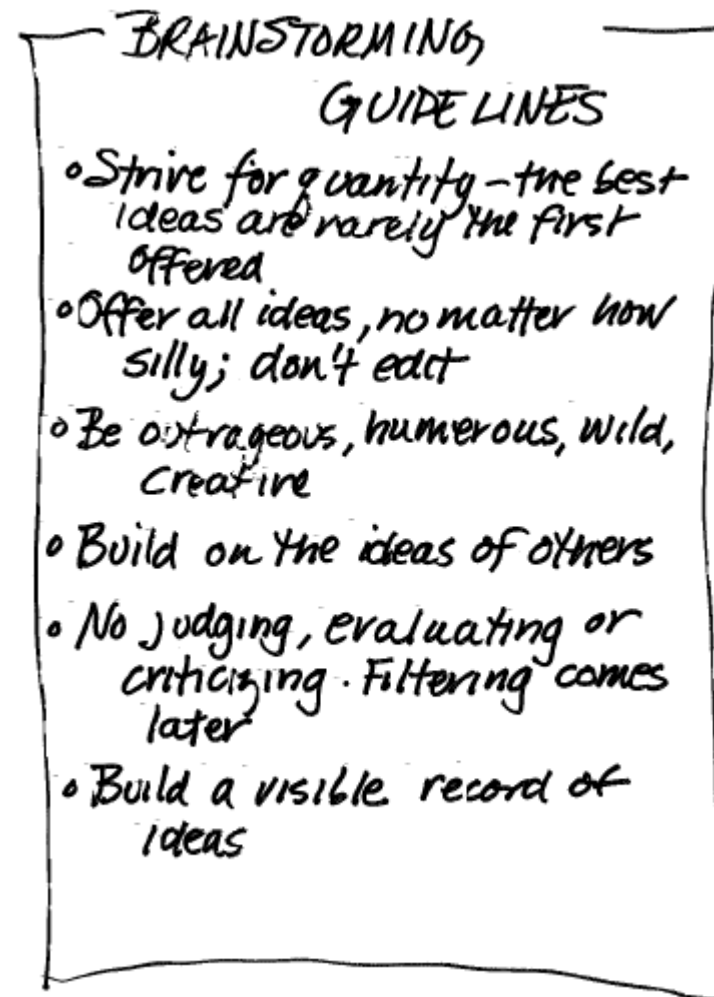 BRAINSTORMING
GUIDELINES
• Strive for quantity – the best
ideas are rarely the first
offered
• Offer all ideas, no matter how
silly; don't edit
• Be outrageous, humerous, wild,
creative
• Build on the ideas of others
• No judging, evaluating or
criticizing. Filtering comes
later
• Build a visible record of
ideas